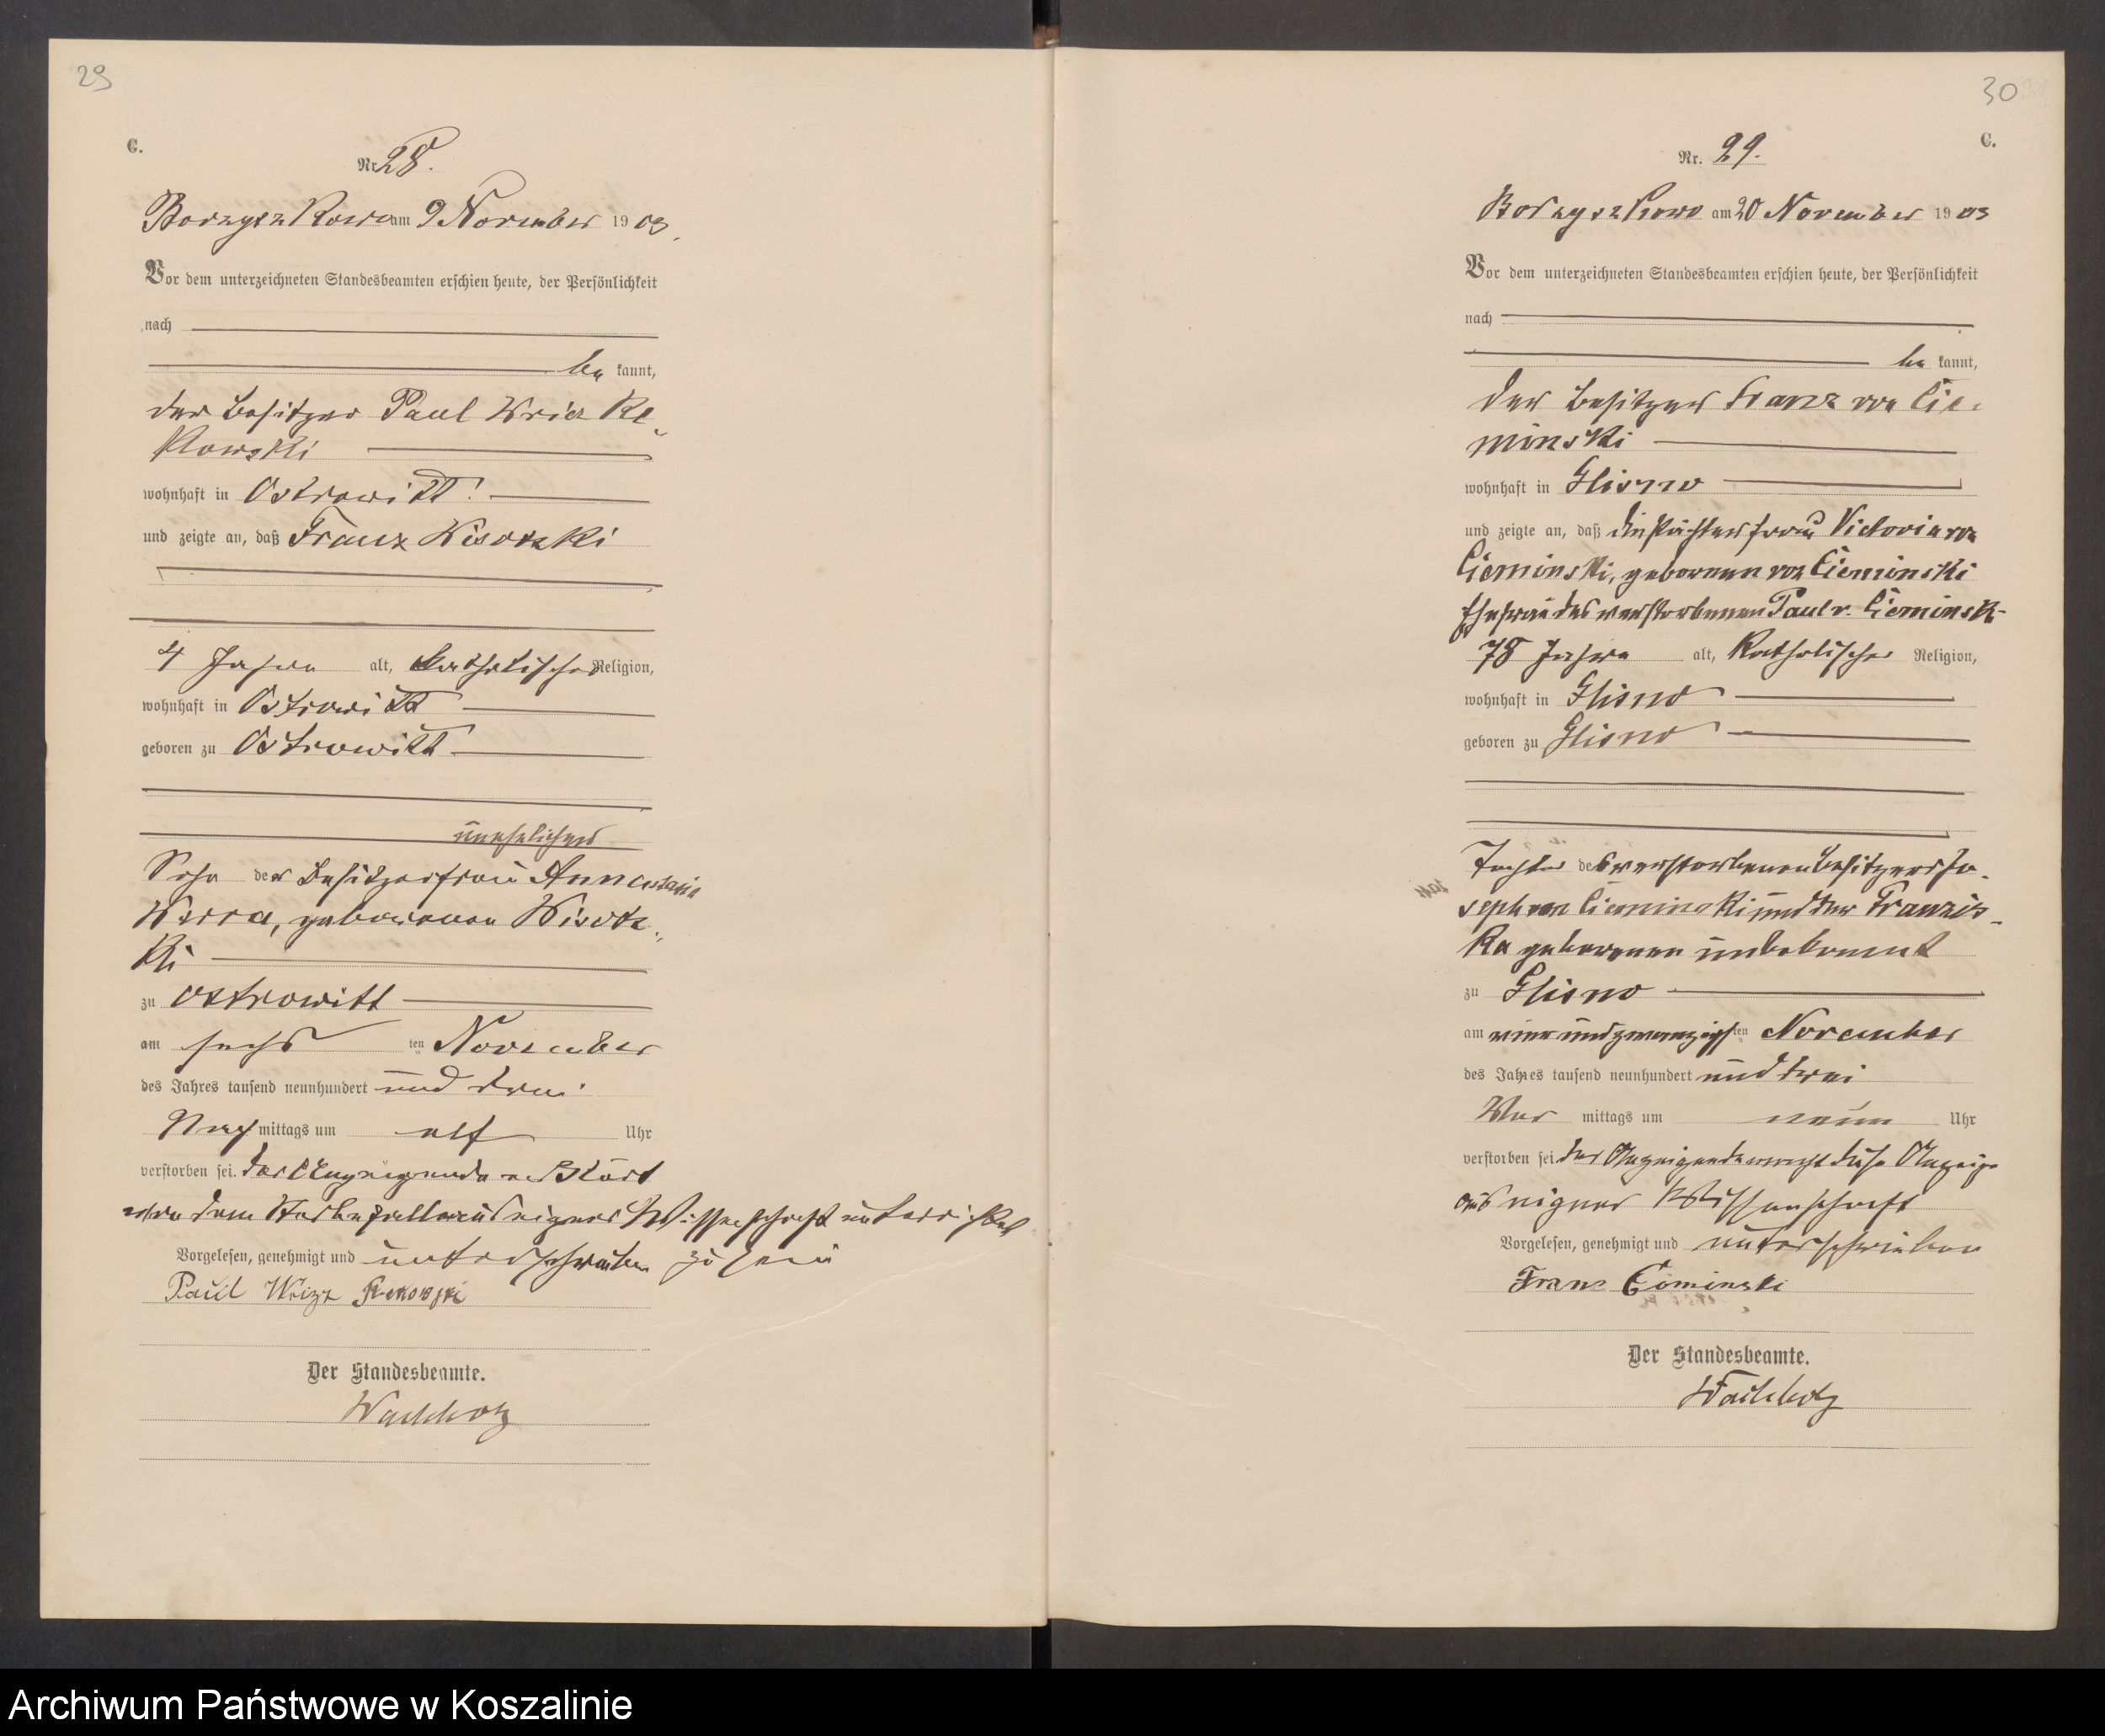 29
C.
Nr. 28.
Borzyszkowo am 9 November 1903.
Vor dem unterzeichneten Standesbeamten erschien heute, der Persönlichkeit
nach
be kannt,
der Besitzer Paul Wricz Re-
kowski
wohnhaft in Ostrowitt
und zeigte an, daß Franz Wisotzki
4 Jahre alt, katholischer Religion,
wohnhaft in Ostrowitt
geboren zu Ostrowitt
unehelicher
Sohn der Besitzerfrau Annastasia
, geborenen Wisotz-
ki
zu Ostrowitt
am sechs ten November
des Jahres tausend neunhundert und drei
Nach mittags um elf Uhr
verstorben sei. Der Anzeigende erklärt
von dem Sterbefalle aus eigner Wissenschaft unterrichtet
Vorgelesen, genehmigt und unterschrieben zu sein
Paul Wrycz Rekowski
Der Standesbeamte.
Wachholz
30
C.
Nr. 29.
Borzyszkowo am 20 November 1903
Vor dem unterzeichneten Standesbeamten erschien heute, der Persönlichkeit
nach
be kannt,
der Besitzer Franz von Cie-
minski
wohnhaft in Glisno
und zeigte an, daß die frau Victoria von
Cieminski, geborenen von Cieminski
Ehefrau des verstorbenen Paul v. Cieminski
78 Jahre alt, Katholischer Religion,
wohnhaft in Glisno
geboren zu Glisno
Tochter des verstorbenen Besitzers Jo-
seph von Cieminski und der Franzis-
ka geborenen unbekannt
zu Glisno
am ten November
des Jahres tausend neunhundert und drei
Vor mittags um neun Uhr
verstorben sei. Der Anzeigende macht diese Anzeige
aus eigner Wissenschaft
Vorgelesen, genehmigt und unterschrieben
Franc Cieminski
Der Standesbeamte.
Wachholz
Archiwum Państwowe w Koszalinie